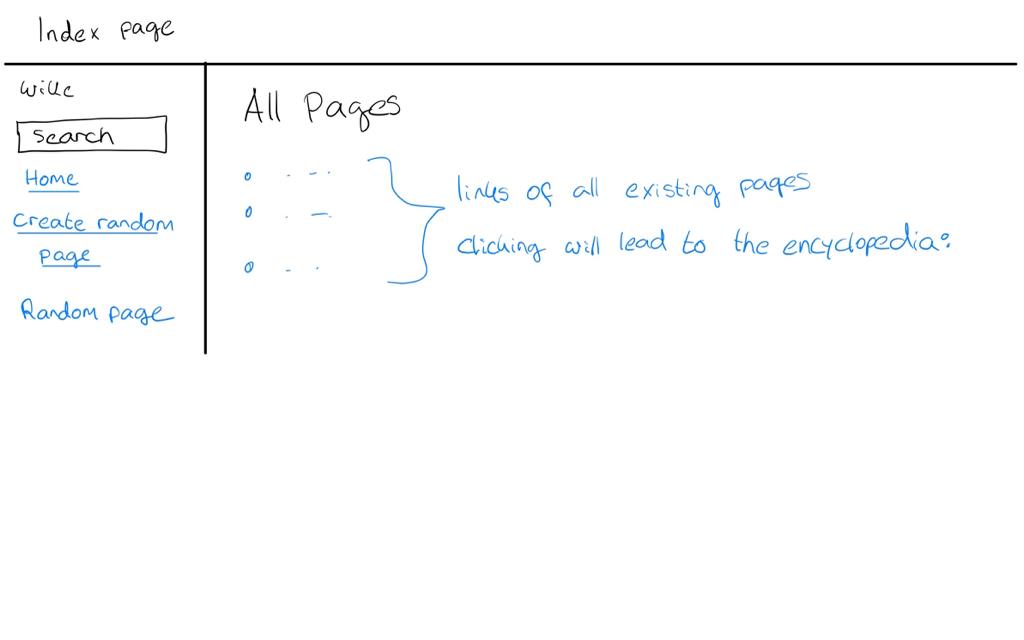 Index page
Search
Home
Create random
page
Random page
All Pages
links of all existing pages
clicking will lead to the encyclopedia: